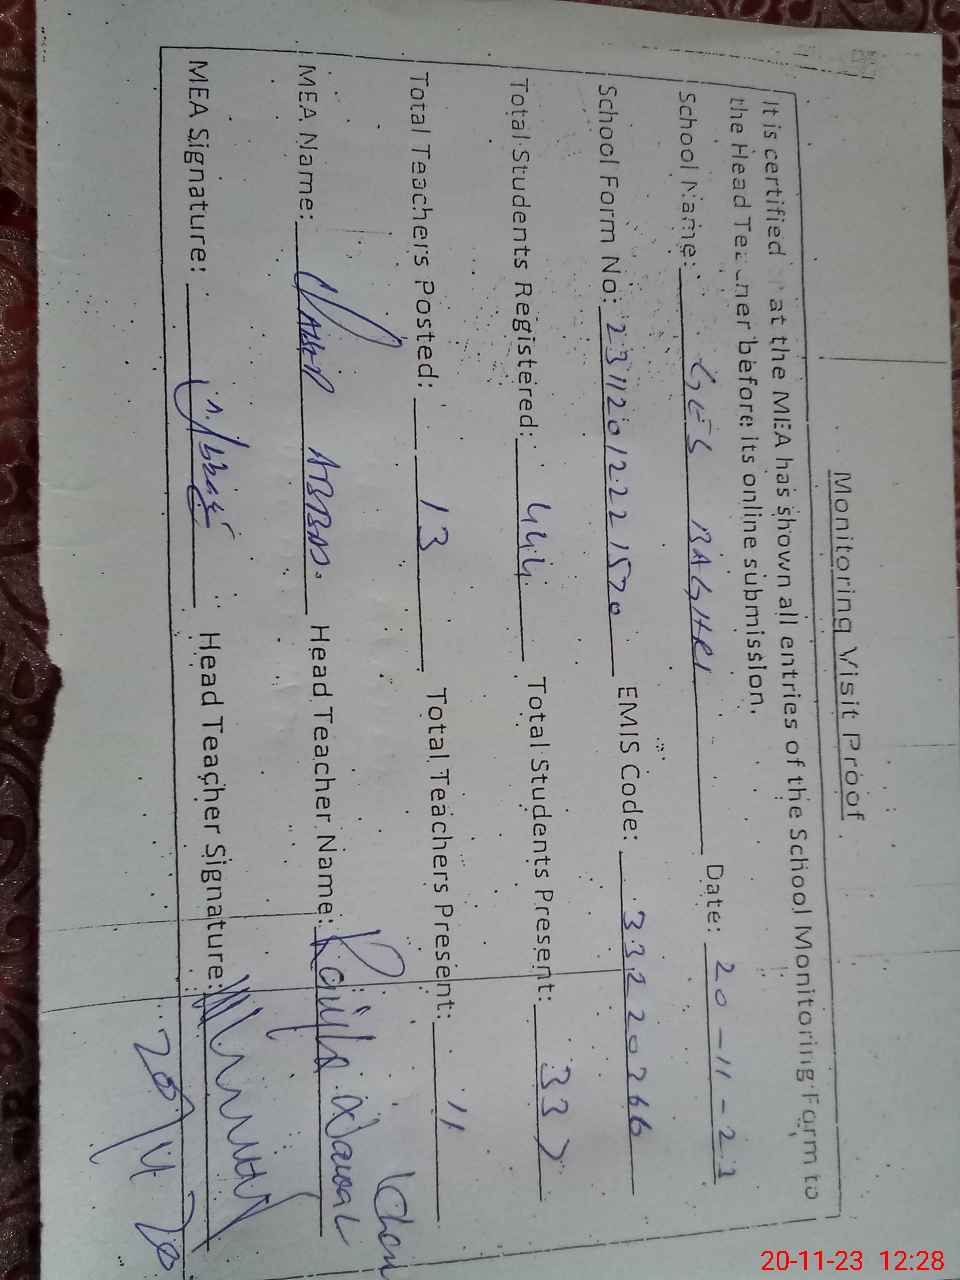 Monitoring Visit Proof
It is certified at the MEA has shown all entries of the School Monitoring Form to
the Head Teacher before its online submission.
School Name: GES BAGHRI Date: 20-11-23
School Form No: 23112012221570 EMIS Code: 33220266
Total Students Registered: 444 Total Students Present: 337
Total Teachers Posted: 13 Total Teachers Present: 11
MEA Name: ABBAS. Head Teacher Name: Nawal Khan
MEA Signature: Head Teacher Signature:
20-11-23 12:28